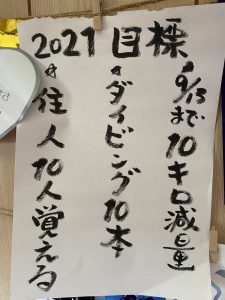 2021目標
9/13まで10キロ減量
ダイビング10本
住人10人覚える